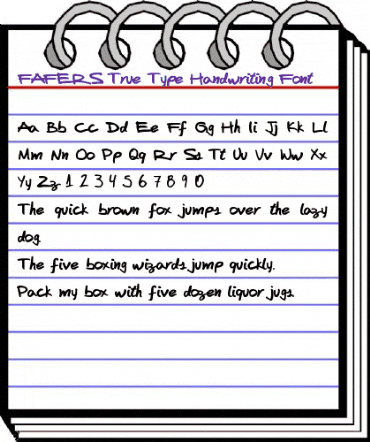 FAFERS True Type Handwriting Font
Aa Bb Cc Dd Ee Ff Gg Hh Ii Jj Kk Ll
Mm Nn Oo Pp Qq Rr Ss Tt Uu Vv Ww Xx
Yy Zz 1 2 3 4 5 6 7 8 9 0
The quick brown fox jumps over the lazy
dog.
The five boxing wizards jump quickly.
Pack my box with five dozen liquor jugs.